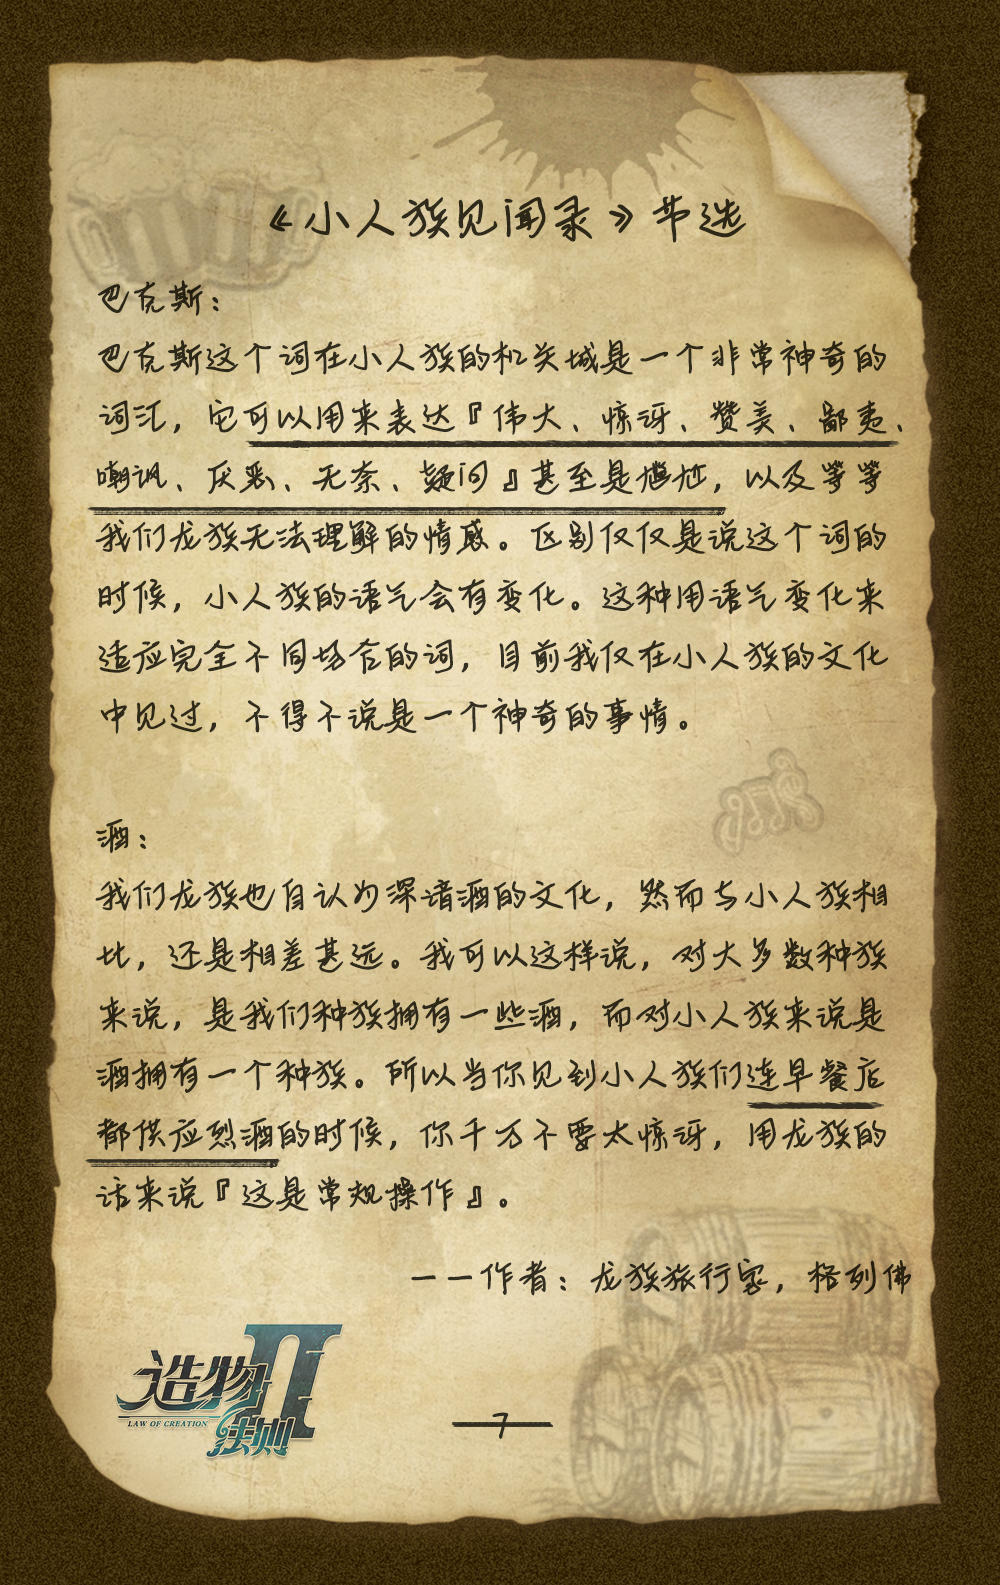 《小人族见闻录》节选
巴克斯：
巴克斯这个词在小人族的机关城是一个非常神奇的
词汇，它可以用来表达『伟大、惊讶、赞美、鄙夷、
嘲讽、厌恶、无奈、疑问』甚至是尴尬，以及等等
我们龙族无法理解的情感。区别仅仅是说这个词的
时候，小人族的语气会有变化。这种用语气变化来
适应完全不同场合的词，目前我仅在小人族的文化
中见过，不得不说是一个神奇的事情。
酒：
我们龙族也自认为深谙酒的文化，然而与小人族相
比，还是相差甚远。我可以这样说，对大多数种族
来说，是我们种族拥有一些酒，而对小人族来说是
酒拥有一个种族。所以当你见到小人族们连早餐店
都供应烈酒的时候，你千万不要太惊讶，用龙族的
话来说『这是常规操作』。
——作者：龙族旅行家，格列佛
造物II
LAW OF CREATION
法则
7